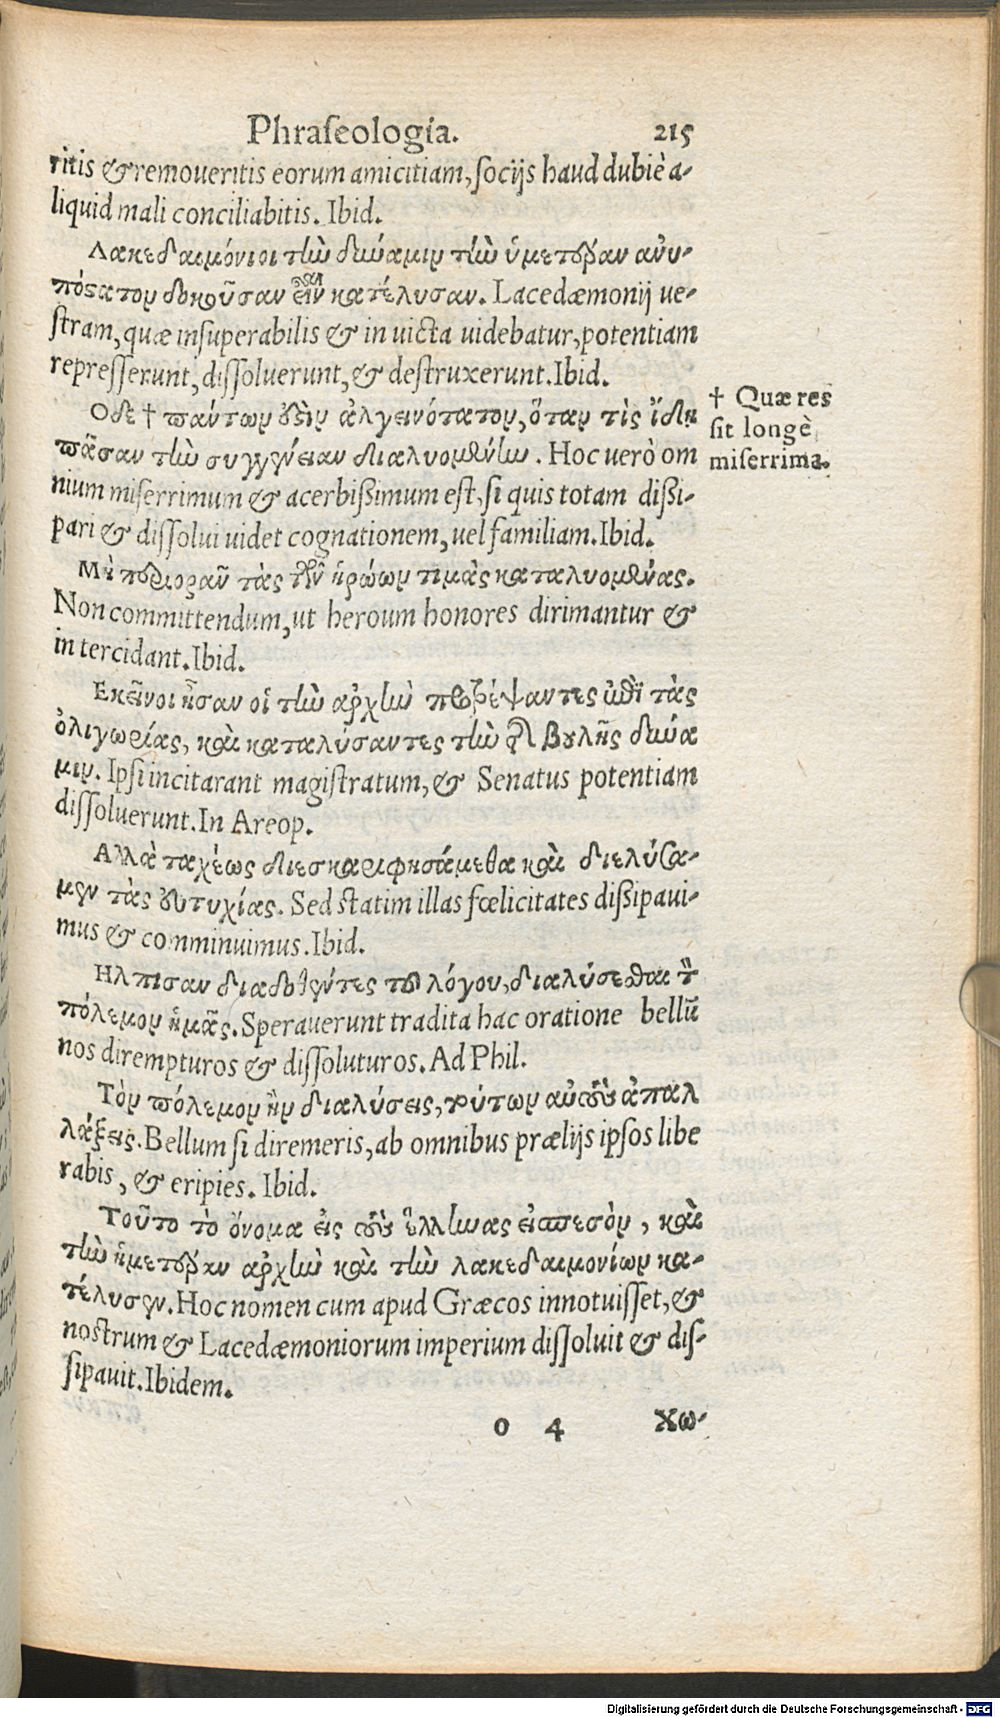 Phraseologia. 215
ritis & remoueritis eorum amicitiam, socijs haud dubiè a-
liquid mali conciliabitis. Ibid.
Λακεδαιμόνιοι τὼ δύναμιν τὼ ὑμετέραν ἀνυ-
πόστατον δοκοῦσαν εἶναι κατέλυσαν. Lacedæmonij ue-
stram, quæ insuperabilis & inuicta uidebatur, potentiam
represserunt, dissoluerunt, & destruxerunt. Ibid.
Οδε † πάντων δεῖν ἀλγεινότατον, ὅταν τὶς ἴδῃ
πᾶσαν τὼ συγγένειαν διαλυομένω. Hoc uerò om
nium miserrimum & acerbissimum est, si quis totam dissi-
pari & dissolui uidet cognationem, uel familiam. Ibid.
† Quæ res
sit longè
miserrima.
Μὴ περιορᾶν τὰς τῶν ἡρώων τιμὰς καταλυομένας.
Non committendum, ut heroum honores dirimantur &
intercidant. Ibid.
Εκεῖνοι ἦσαν οἱ τὼ ἀρχὼ προτρέψαντες ἐπὶ τὰς
ὀλιγωρίας, καὶ καταλύσαντες τὼ τῆς βουλῆς δύνα
μιν. Ipsi incitarant magistratum, & Senatus potentiam
dissoluerunt. In Areop.
Αλλὰ ταχέως διεσκαριφησάμεθα καὶ διελύσα-
μεν τὰς εὐτυχίας. Sed statim illas fœlicitates dissipaui-
mus & comminuimus. Ibid.
Ηλπισαν διαδοθέντες τοῦ λόγου, διαλύσεσθαι τὸν
πόλεμον ἡμᾶς. Sperauerunt tradita hac oratione bellũ
nos dirempturos & dissoluturos. Ad Phil.
Τὸν πόλεμον ἢν διαλύσεις, τούτων αὐτοὺς ἀπαλ
λάξεις. Bellum si diremeris, ab omnibus prælijs ipsos libe
rabis, & eripies. Ibid.
Τοῦτο τὸ ὄνομα εἰς τοὺς ἕλληνας εἰσπεσὸν, καὶ
τὼ ἡμετέραν ἀρχὼ καὶ τὼ λακεδαιμονίων κα-
τέλυσεν. Hoc nomen cum apud Græcos innotuisset, &
nostrum & Lacedæmoniorum imperium dissoluit & dis-
sipauit. Ibidem.
o 4 Χω-
Digitalisierung gefördert durch die Deutsche Forschungsgemeinschaft - DFG